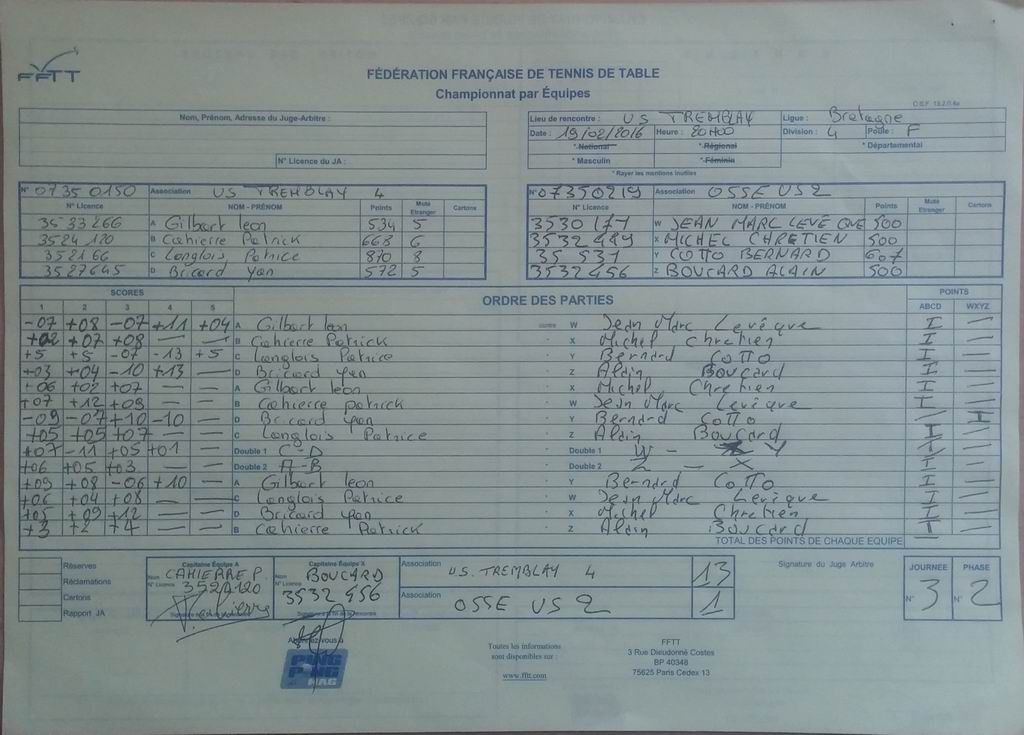 FFTT
FÉDÉRATION FRANÇAISE DE TENNIS DE TABLE
Championnat par Équipes
Nom, Prénom, Adresse du Juge-Arbitre :
N° Licence du JA :
Lieu de rencontre : US TREMBLAY Ligue : Bretagne
Date : 19/02/2016 Heure : 20H00 Division : 4 Poule : F
* National * Régional * Départemental
* Masculin * Féminin
* Rayer les mentions inutiles
N° 0735 0150 Association US TREMBLAY 4
N° Licence NOM - PRÉNOM Points Muté Etranger Cartons
3533266 A Gilbert leon 534 5
3524120 B Cahierre Patrick 668 6
352166 C Langlois Patrice 810 8
3527645 D Bricard Yan 572 5
N° 07350219 Association OSSE US 2
N° Licence NOM - PRÉNOM Points Muté Etranger Cartons
3530177 W JEAN MARC LEVÊQUE 500
3532489 X MICHEL CHRETIEN 500
35 531 Y COTTO BERNARD 607
3532456 Z BOUCARD ALAIN 500
SCORES ORDRE DES PARTIES POINTS
1 2 3 4 5 ABCD WXYZ
-07 +08 -07 +11 +04 A Gilbert leon contre W Jean Marc Levêque I —
+02 +07 +08 — — B Cahierre Patrick - X Michel Chretien I —
+5 +5 -07 -13 +5 C Langlois Patrice - Y Bernard Cotto I —
+03 +04 -10 +13 — D Bricard Yan - Z Alain Boucard I —
+06 +02 +07 — — A Gilbert leon - X Michel Chretien I —
+07 +12 +09 — — B Cahierre Patrick - W Jean Marc Levêque I —
-09 -07 +10 -10 — D Bricard Yan - Y Bernard Cotto — I
+05 +05 +07 — — C Langlois Patrice - Z Alain Boucard I —
+07 -11 +05 +01 — Double 1 C-D - Double 1 W - Y I —
+06 +05 +03 — — Double 2 A-B - Double 2 Z - X I —
+09 +08 -06 +10 — A Gilbert leon - Y Bernard Cotto I —
+06 +04 +08 — — C Langlois Patrice - W Jean Marc Levêque I —
+05 +09 +12 — — D Bricard Yan - X Michel Chretien I —
+3 +2 +4 — — B Cahierre Patrick - Z Alain Boucard I —
TOTAL DES POINTS DE CHAQUE EQUIPE
Réserves
Réclamations
Cartons
Rapport JA
Capitaine Équipe A
Nom CAHIERRE P.
N° Licence 3524120
Capitaine Équipe X
Nom BOUCARD
N° Licence 3532456
Association U.S. TREMBLAY 4 13
Association OSSE US 2 1
Signature du Juge Arbitre
JOURNÉE N° 3
PHASE N° 2
Abonnez-vous à
PING PONG MAG
Toutes les informations
sont disponibles sur :
www.fftt.com
FFTT
3 Rue Dieudonné Costes
BP 40348
75625 Paris Cedex 13